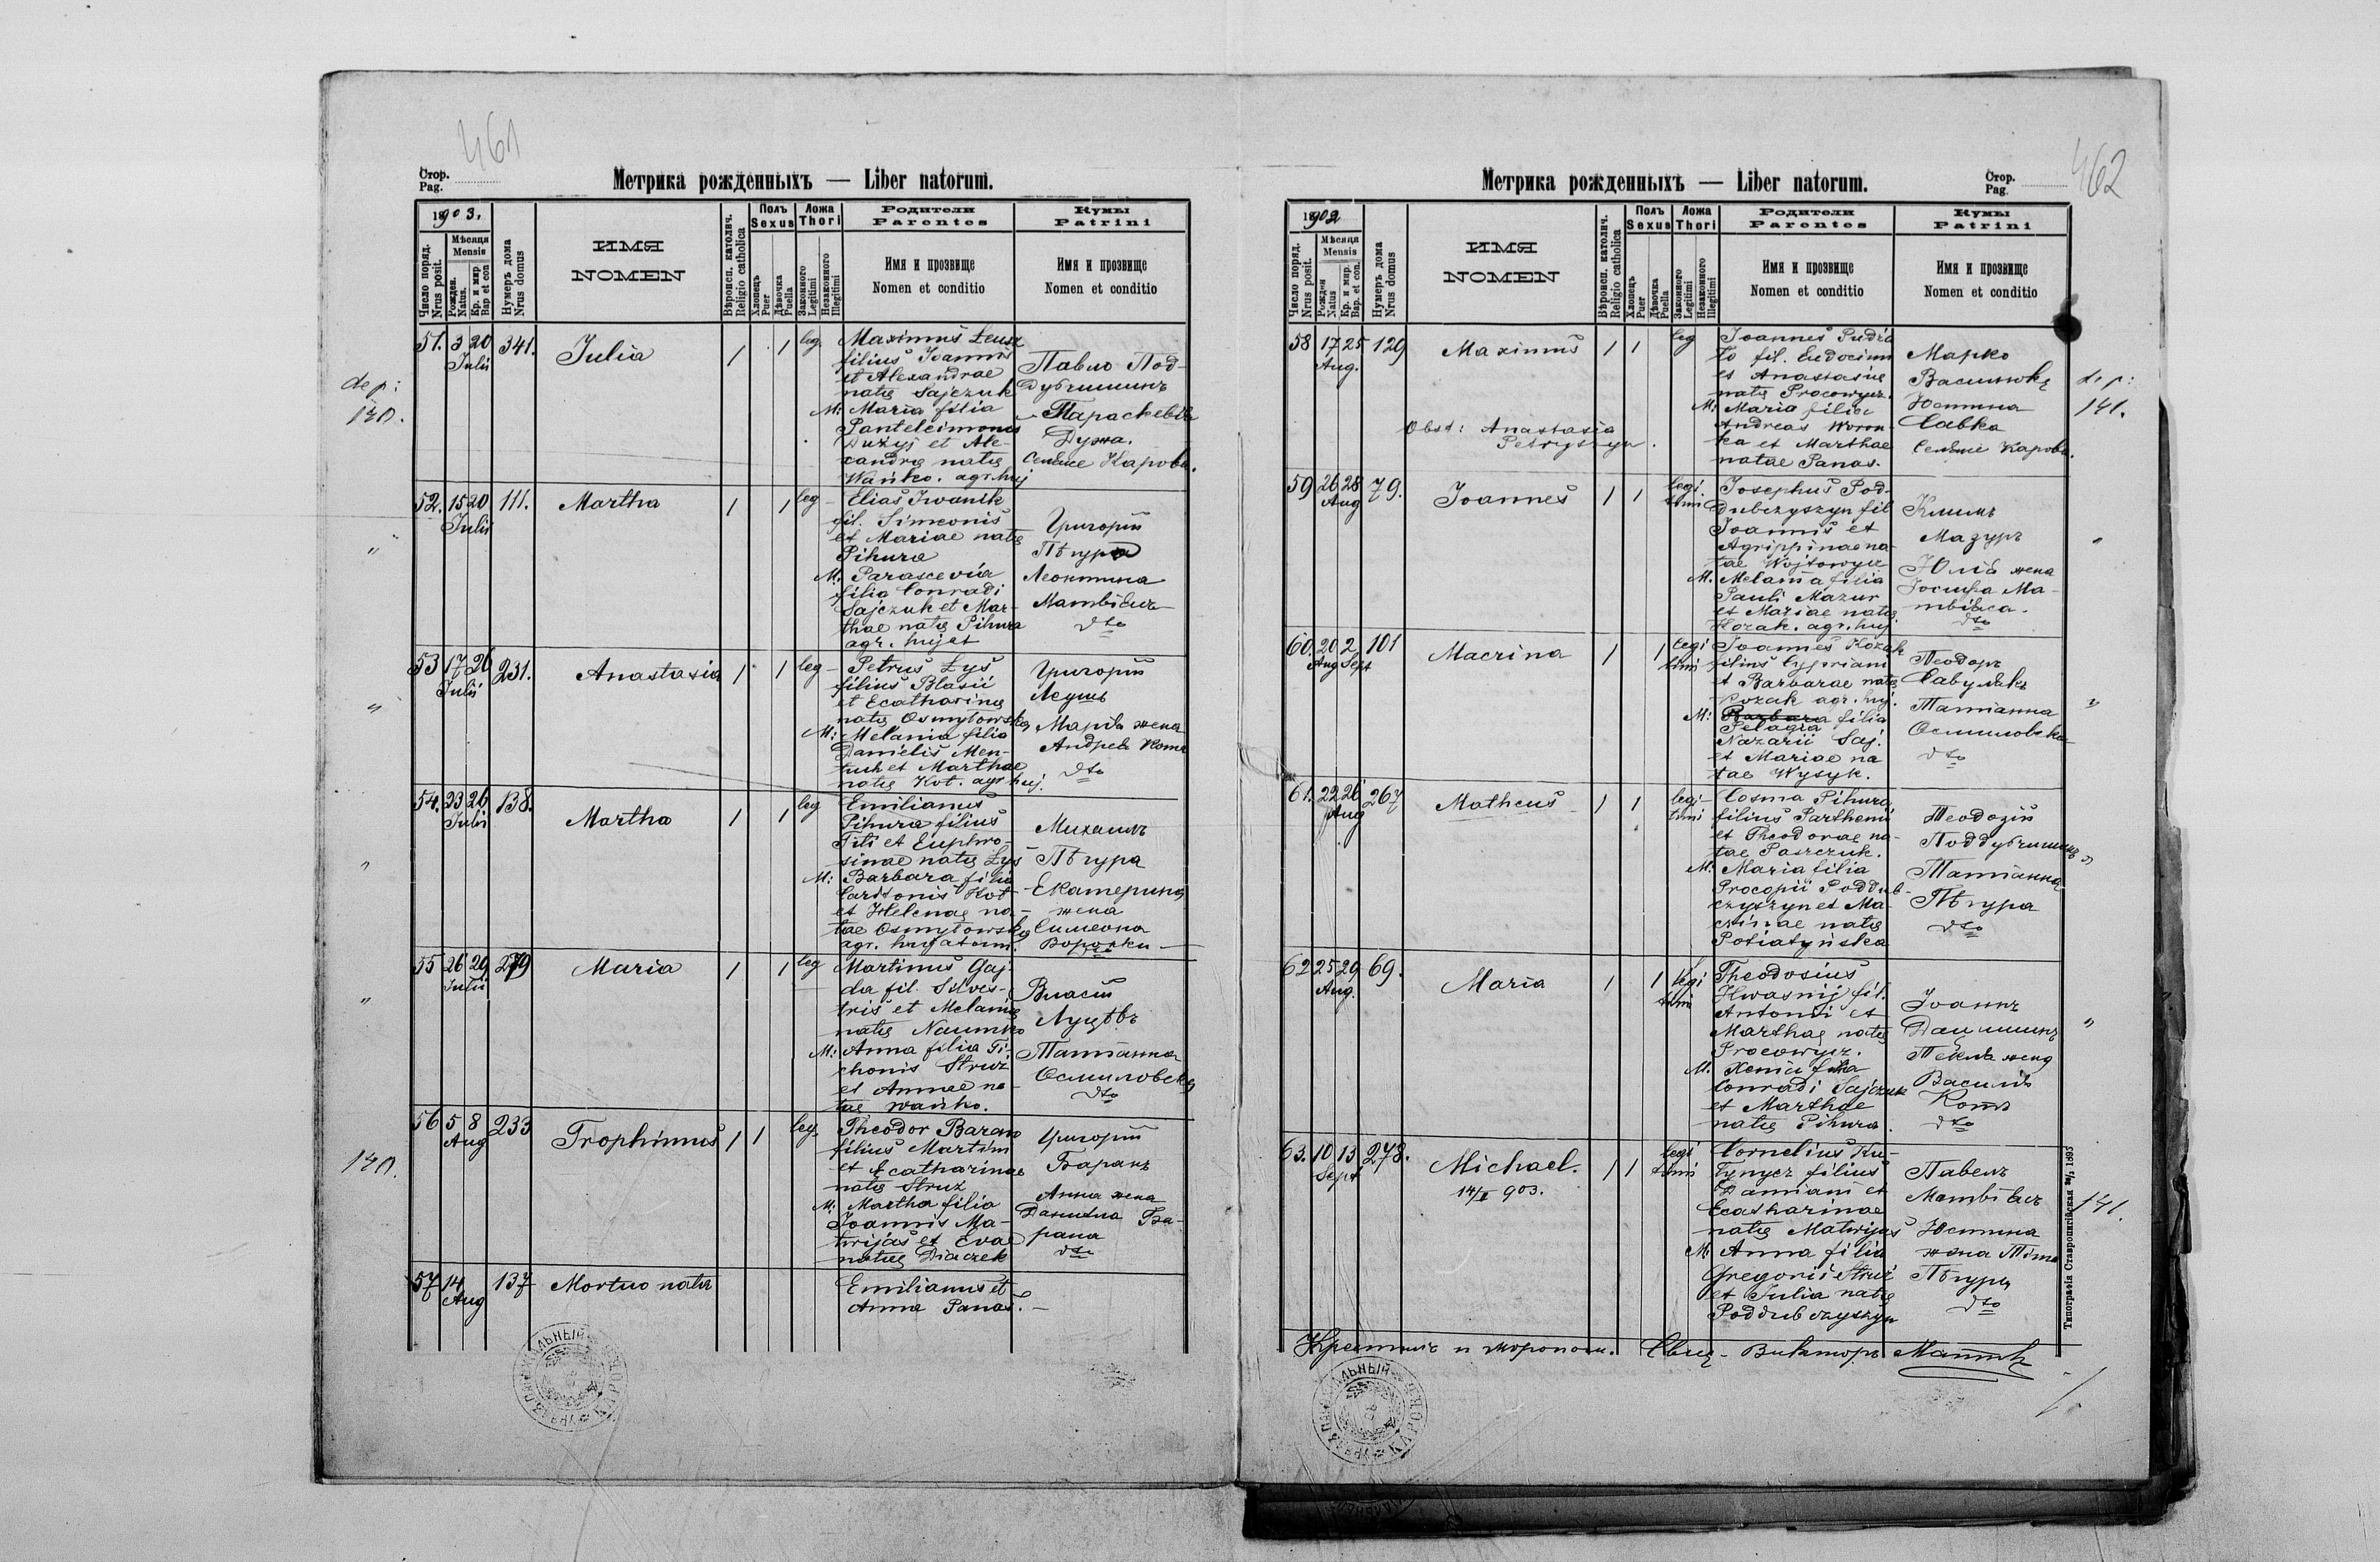 461
Стор.
Pag.
Метрика рожденныхъ — Liber natorum.
1903.
Число поряд.
Nrus posit.
Мѣсяця
Mensis
Рожден.
Natus.
Кр. и мѵр.
Bap et con
Нумеръ дома
Nrus domus
ИМЯ
NOMEN
Вѣроисп. католич.
Religio catholica
Полъ
Sexus
Хлопецъ
Puer
Дѣвочка
Puella
Ложа
Thori
Законного
Legitimi
Незаконного
Illegitimi
Родители
Parentes
Имя и прозвище
Nomen et conditio
Кумы
Patrini
Имя и прозвище
Nomen et conditio
dep:
140.
51. 3 20 341. Julia 1 1 leg.
Julii
Maximus Leusz
filius Joannis
et Alexandrae
natę Sajczuk
M: Maria filia
Panteleimonis
Dużyj et Ale-
xandrę natę
Wańko. agr. huj
Павло Под-
дубчишинъ
Параскевія
Дужа.
Селяне Карова.
52. 15 20 111. Martha 1 1 leg
Julii
Elias Iwanik
fil. Simeonis
et Mariae natę
Pihura
M. Parascevia
filia Conradi
Sajczuk et Mar-
thae natę Pihura
agr. hujat
Григорій
Пѣгура
Леонтина
Матвіевъ
dto
53 17 26 231. Anastasia 1 1 leg
Julii
Petrus Łys
filius Blasii
et Ecatharinę
natę Osmyłowska
M: Melania filia
Danielis Men-
tuch et Marthae
natę Kot. agr huj.
Григорій
Леушъ
Марія жена
Андрея Кота
dto
54. 23 26 138. Martha 1 1 leg
Julii
Emilianus
Pihura filius
Titi et Euphro-
sinae natę Łys
M: Barbara filia
Caritonis Kot
et Helenae na-
tae Osmyłowska
agr. hujatomi.
Михаилъ
Пѣгура
Екатерина
жена
Симеона
Воронки
55 26 29 279 Maria 1 1 leg
Julii
Martinus Gaj-
da fil. Silves-
tris et Melanię
natę Naumko
M: Anna filia Ti-
chonis Struz
et Annae na-
tae Wańko.
Власій
Луцѣвъ
Татіанна
Осмиловска
dto
140.
56 5 8 233 Trophimus 1 1 leg.
Aug
Theodor Baran
filius Martini
et Ecatharinae
natę Struz
M: Martha filia
Joannis Ma-
twijas et Evae
natae Diaczek
Григорій
Баранъ
Анна жена
Даніила Ба-
рана
dto
57 14 137 Mortuo nata
Aug
Emilianus et
Anna Panas.
462
Стор.
Pag.
Метрика рожденныхъ — Liber natorum.
1902
Число поряд.
Nrus posit.
Мѣсяця
Mensis
Рожден
Natus
Кр. и мѵр.
Bap. et con.
Нумеръ дома
Nrus domus
ИМЯ
NOMEN
Вѣроисп. католич.
Religio catholica
Полъ
Sexus
Хлопецъ
Puer
Дѣвочка
Puella
Ложа
Thori
Законного
Legitimi
Незаконного
Illegitimi
Родители
Parentes
Имя и прозвище
Nomen et conditio
Кумы
Patrini
Имя и прозвище
Nomen et conditio
dep:
141.
58 17 25 129 Maximus 1 1 leg
Aug.
Obst: Anastasia
Petryszyn.
Joannes Pudeł
ko fil. Eudocimi
et Anastasię
natę Procowycz.
M: Maria filia
Andreas Woron-
ka et Marthae
natae Panas.
Марко
Васильовъ
Юстина
Савка
Селяне Карова.
59 26 28 79. Joannes 1 1 legi.
Aug timi
Josephus Pod-
dubczyszyn fil
Joannis et
Agrippinae na-
tae Wojtowycz
M. Melania filia
Pauli Mazur
et Mariae natę
Kozak. agr. huj.
Климъ
Мазуръ
Юлія жена
Іосифа Ма-
твійса.
dto
60. 20 2 101 Macrina 1 1 legi
Aug Sept timi
Joannes Kozak
filius Cypriani
et Barbarae natę
Pozak agr. huj.
M: Barbara filia
Pelagia
Nazarii Saj.
et Mariae na
tae Wysyk.
Теодоръ
Савулякъ
Татіанна
Осмиловска
dto
61. 22 26 267 Matheus 1 1 legi-
Aug timi
Cosma Pihura
filius Parthenii
et Theodorae na-
tae Paszczuk.
M: Maria filia
Procopii Poddub-
czyszyn et Ma-
crinae natę
Potiatyńska
Теодозій
Поддубчишинъ
Татіанна
Пѣгура
dto
62 25 29 69. Maria 1 1 legi
Aug. timi
Theodosius
Hwasnij fil.
Antonii et
Marthae natę
Procowycz.
M. Xenia filia
Conradi Sajczuk
et Marthae
natę Pihura.
Іоаннъ
Дацишинъ
Текля жена
Василія
Кота
dto
63. 10 13 278. Michael. 1 1 legi
Sept timi
14/II 903.
Cornelius Ku-
łynycz filius
Damiani et
Ecatharinae
natę Matwijas
M. Anna filia
Gregorii Struz
et Julia natę
Poddubczyszyn
Павелъ
Матвіевъ
Юстина
жена Тита
Пѣгуры
dto
141.
Крестилъ и мѵропом. Свящ. Викторъ Матюкъ
Типографія Ставропигійская 1895